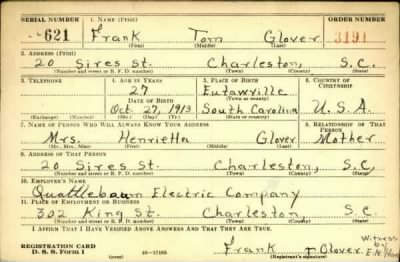 SERIAL NUMBER 1. NAME (Print) ORDER NUMBER
621 Frank Tom Glover 3191
(First) (Middle) (Last)
2. ADDRESS (Print)
20 Sires St. Charleston, S.C.
(Number and street or R. F. D. number) (Town) (County) (State)
3. TELEPHONE 4. AGE IN YEARS 5. PLACE OF BIRTH 6. COUNTRY OF CITIZENSHIP
27 Eutawville
DATE OF BIRTH (Town or county)
Oct. 27, 1913 South Carolina U.S.A.
(Exchange) (Number) (Mo.) (Day) (Yr.) (State or country)
7. NAME OF PERSON WHO WILL ALWAYS KNOW YOUR ADDRESS 8. RELATIONSHIP OF THAT PERSON
Mrs. Henrietta Glover Mother
(Mr., Mrs., Miss) (First) (Middle) (Last)
9. ADDRESS OF THAT PERSON
20 Sires St. Charleston, S.C.
(Number and street or R. F. D. number) (Town) (County) (State)
10. EMPLOYER'S NAME
Quattlebaum Electric Company
11. PLACE OF EMPLOYMENT OR BUSINESS
302 King St. Charleston, S.C.
(Number and street or R. F. D. number) (Town) (County) (State)
I AFFIRM THAT I HAVE VERIFIED ABOVE ANSWERS AND THAT THEY ARE TRUE.
Witness
by
REGISTRATION CARD Frank T Glover E.H.
D. S. S. FORM 1 16—17105 (Registrant's signature)